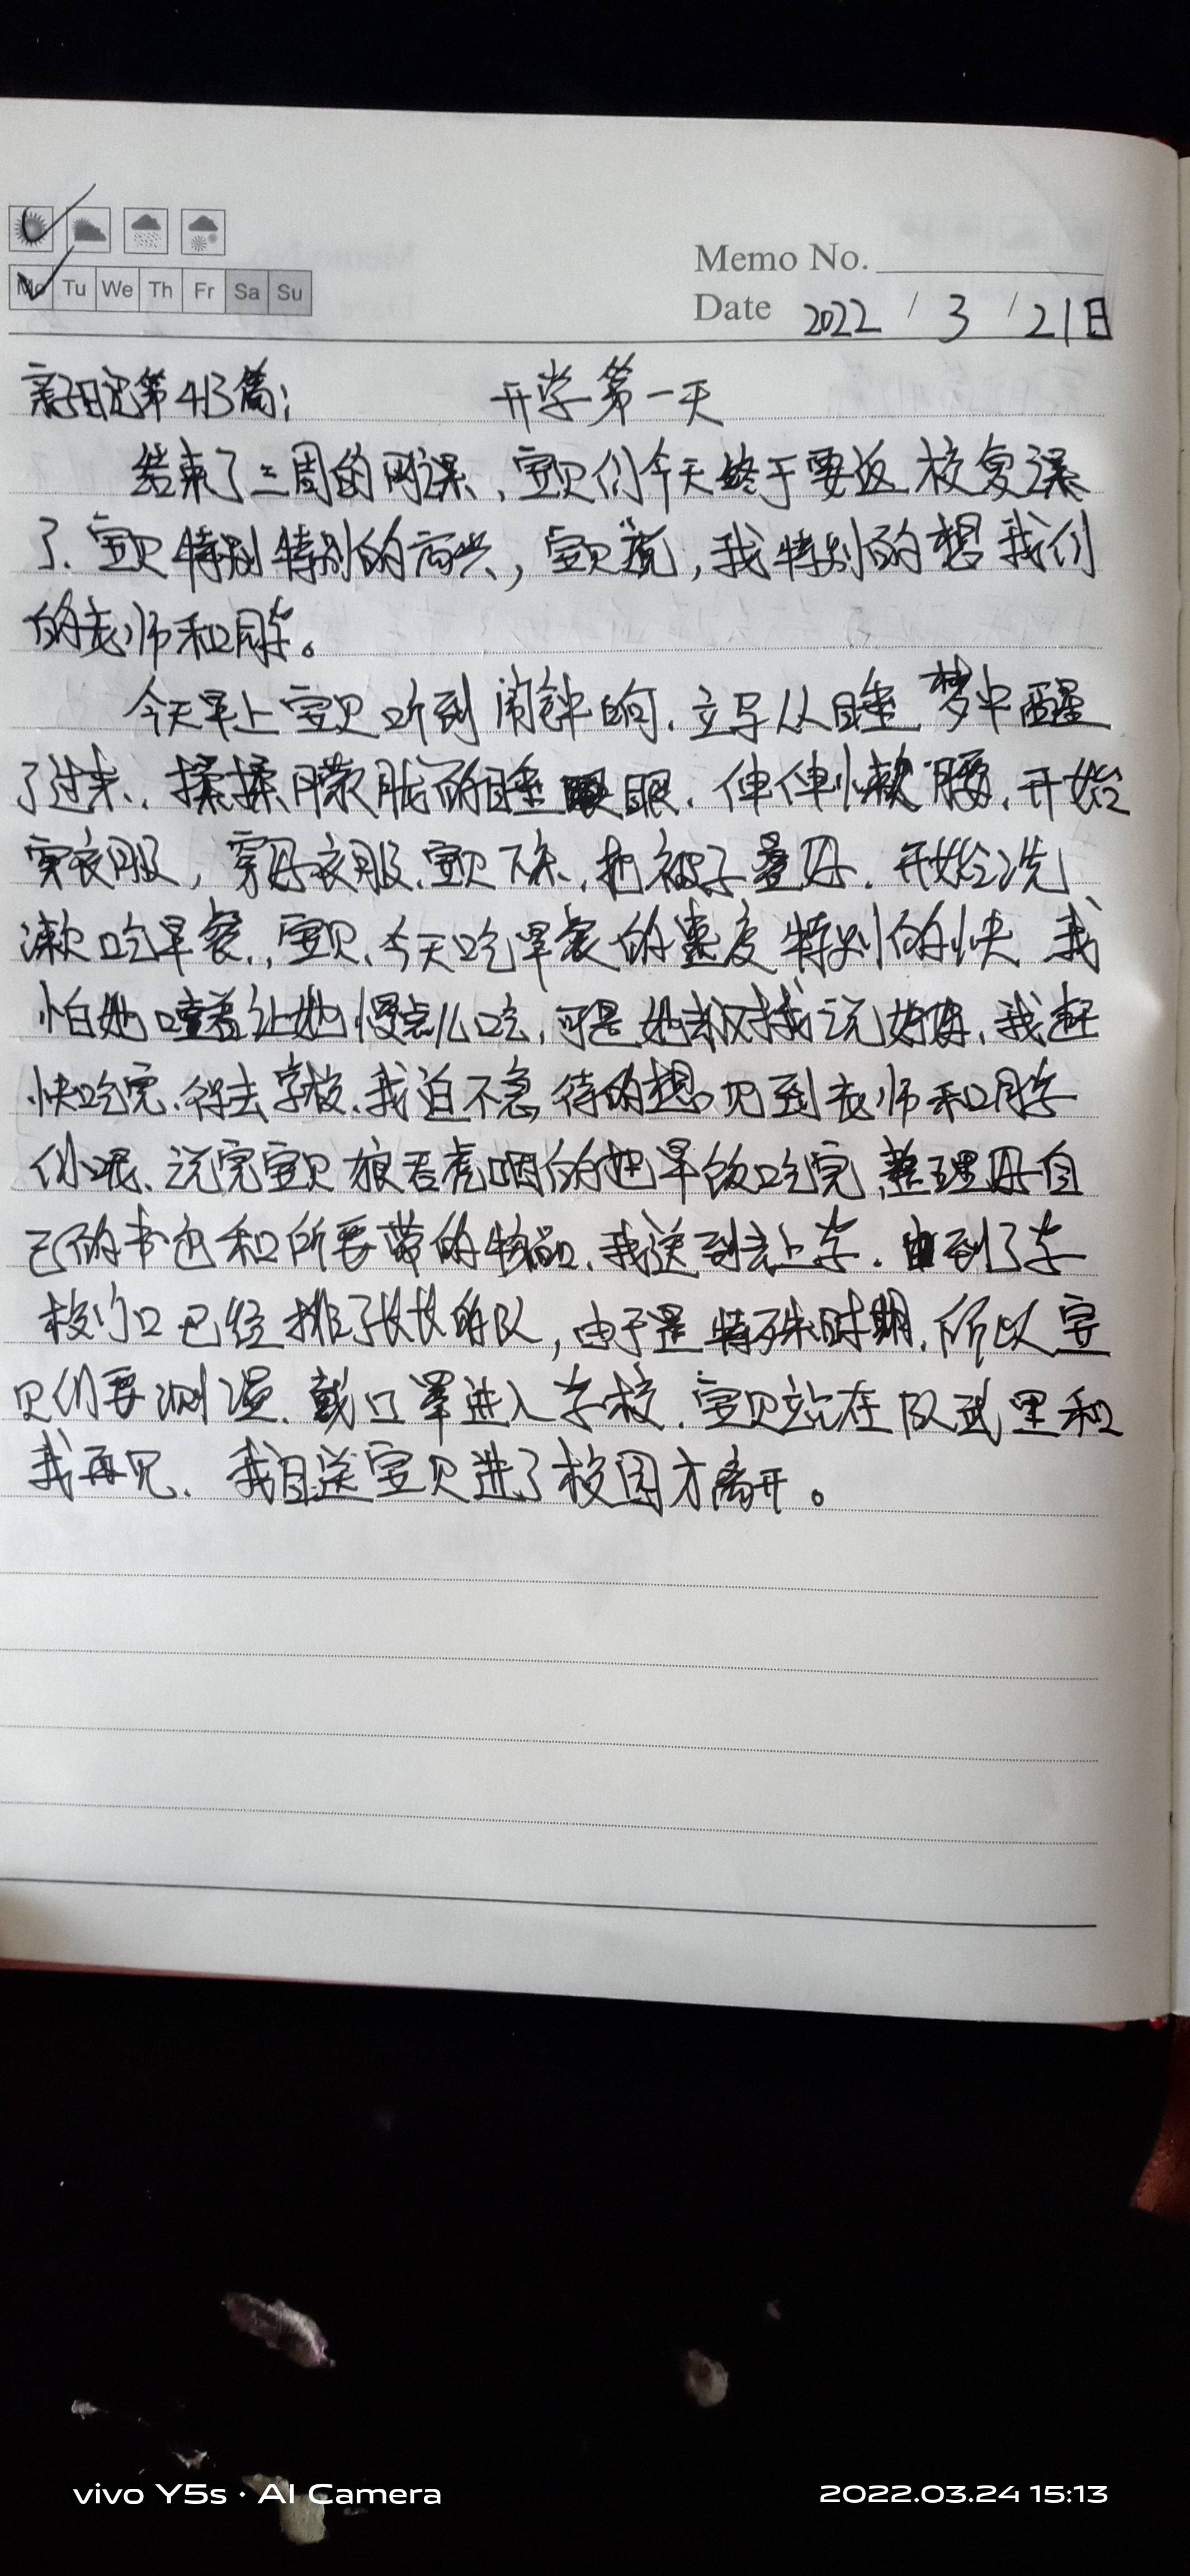 Mo Tu We Th Fr Sa Su
Memo No.
Date 2022 / 3 / 21日
亲子日记第413篇; 开学第一天
结束了三周的网课,宝贝们今天终于要返校复课
了、宝贝特别特别的高兴,宝贝说,我特别的想我们
的老师和同学。
今天早上宝贝听到闹钟响,立马从睡梦中醒
了过来,揉揉朦胧的睡眼,伸伸小懒腰,开始
穿衣服,穿好衣服,宝贝下床,把被子叠好,开始洗
漱吃早餐,宝贝今天吃早餐的速度特别的快 我
怕她噎着让她慢点儿吃,可是她却对我说妈妈,我赶
快吃完,得去学校,我迫不急待的想见到老师和同学
们呢、说完宝贝狼吞虎咽的把早饭吃完 整理好自
己的书包和所要带的物品、我送到去上学.到了学
校门口已经排了长长的队,由于是特殊时期,所以宝
贝们要测温、戴口罩进入学校,宝贝站在队武里和
我再见、我目送宝贝进了校园才离开。
vivo Y5s · AI Camera
2022.03.24 15:13